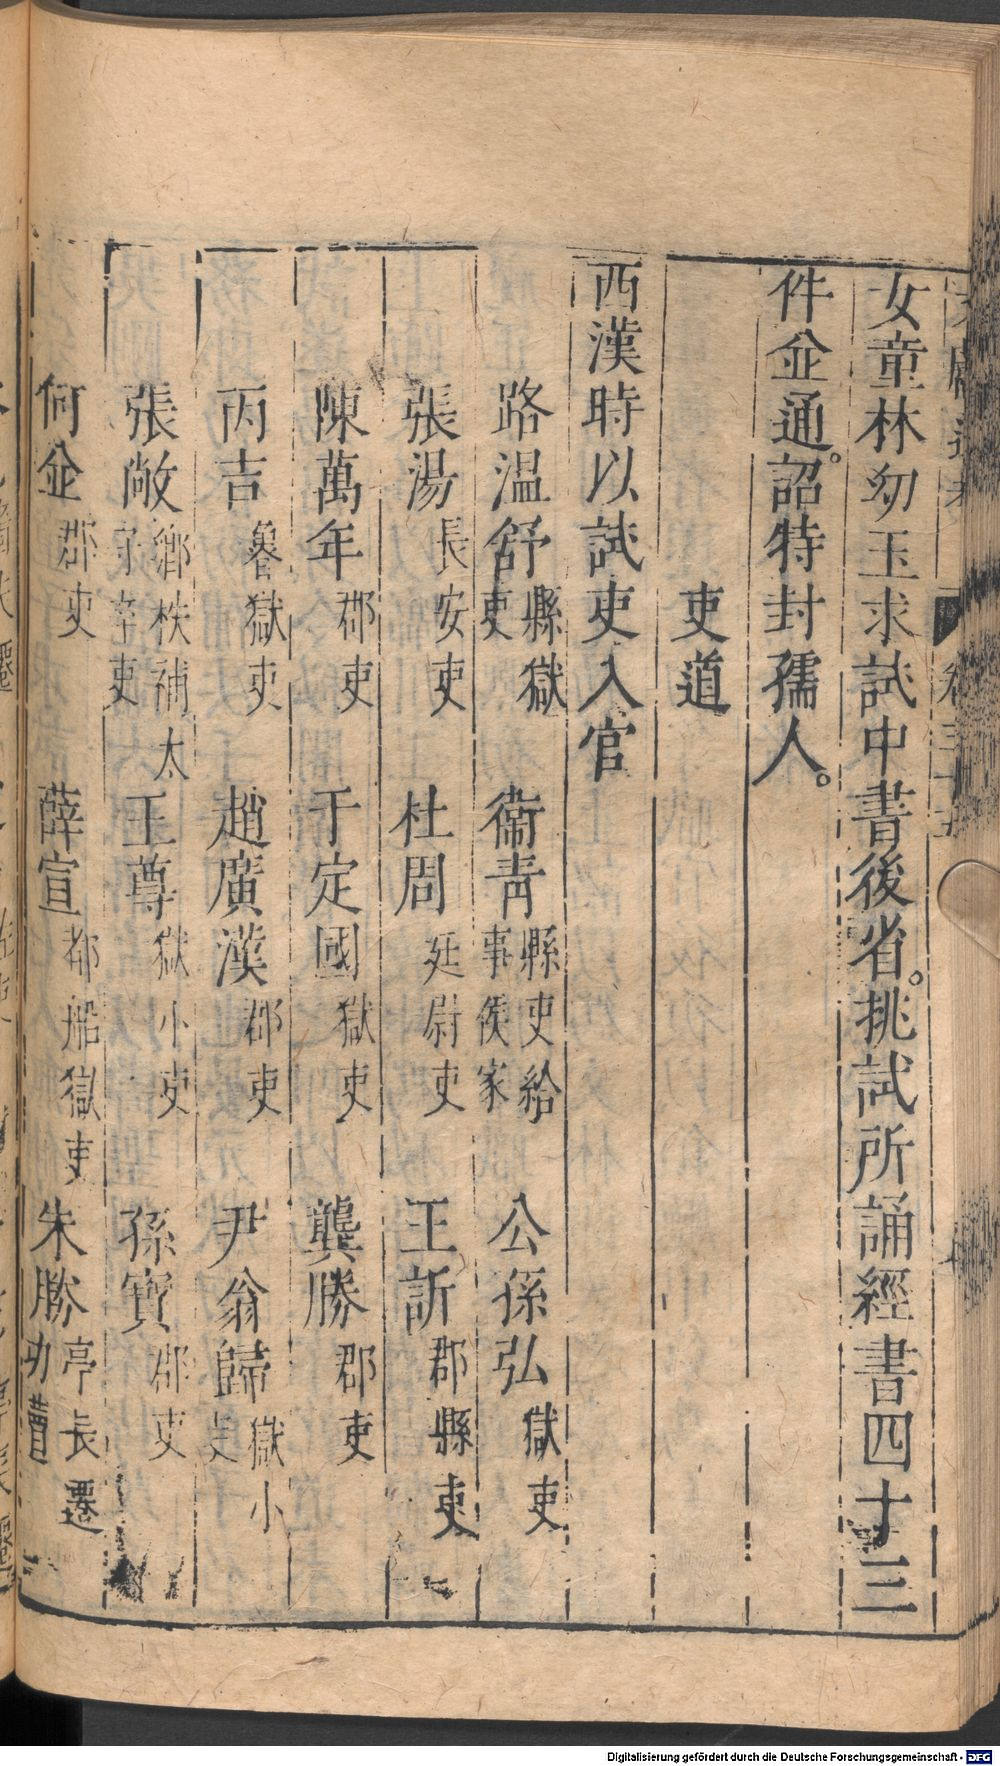 女童林㓜玉求試中書後省。挑試所誦經書四十三
件並通。詔特封孺人。
吏道
西漢時以試吏入官
路温舒 縣獄吏 衞青 縣吏給事侯家 公孫弘 獄吏
張湯 長安吏 杜周 廷尉吏 王訢 郡縣吏
陳萬年 郡吏 于定國 獄吏 龔勝 郡吏
丙吉 魯獄吏 趙廣漢 郡吏 尹翁歸 獄小吏
張敞 鄉秩補太守卒吏 王尊 獄小吏 孫寳 郡吏
何並 郡吏 薛宣 都船獄吏 朱勝 亭長遷功曹
Digitalisierung gefördert durch die Deutsche Forschungsgemeinschaft - DFG